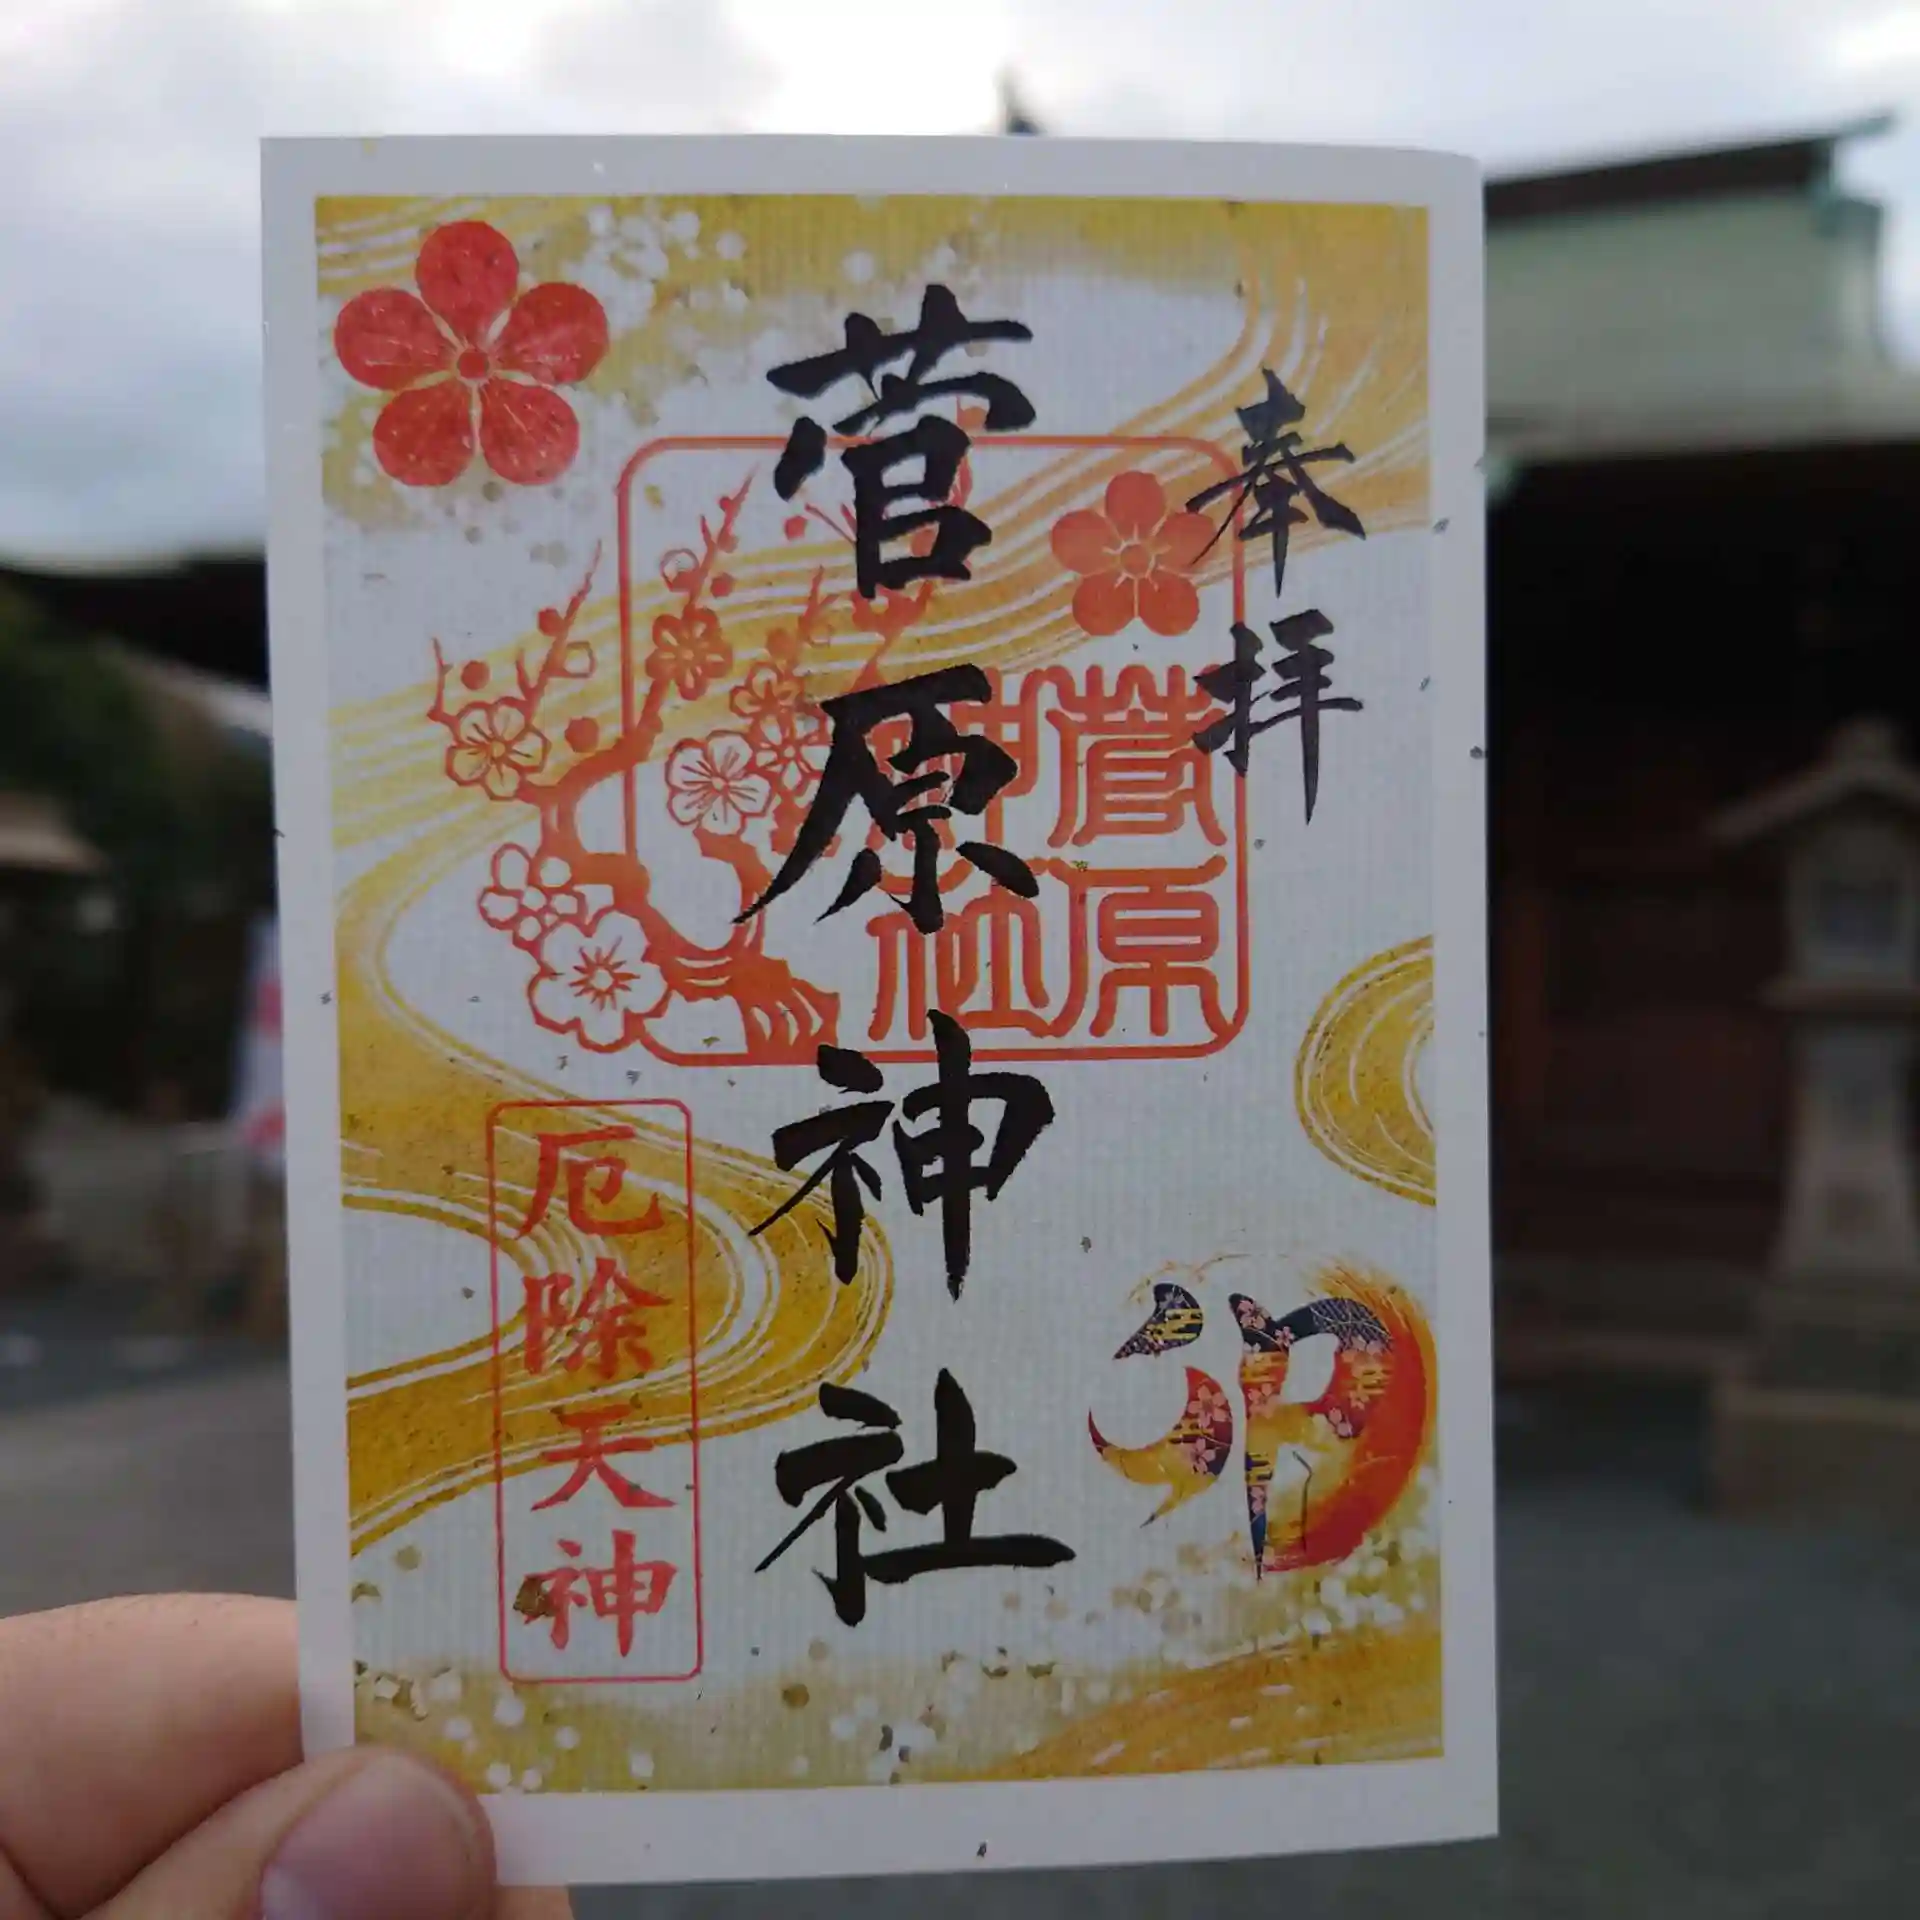 奉拝
菅原神社
菅原
神社
厄除天神
卯